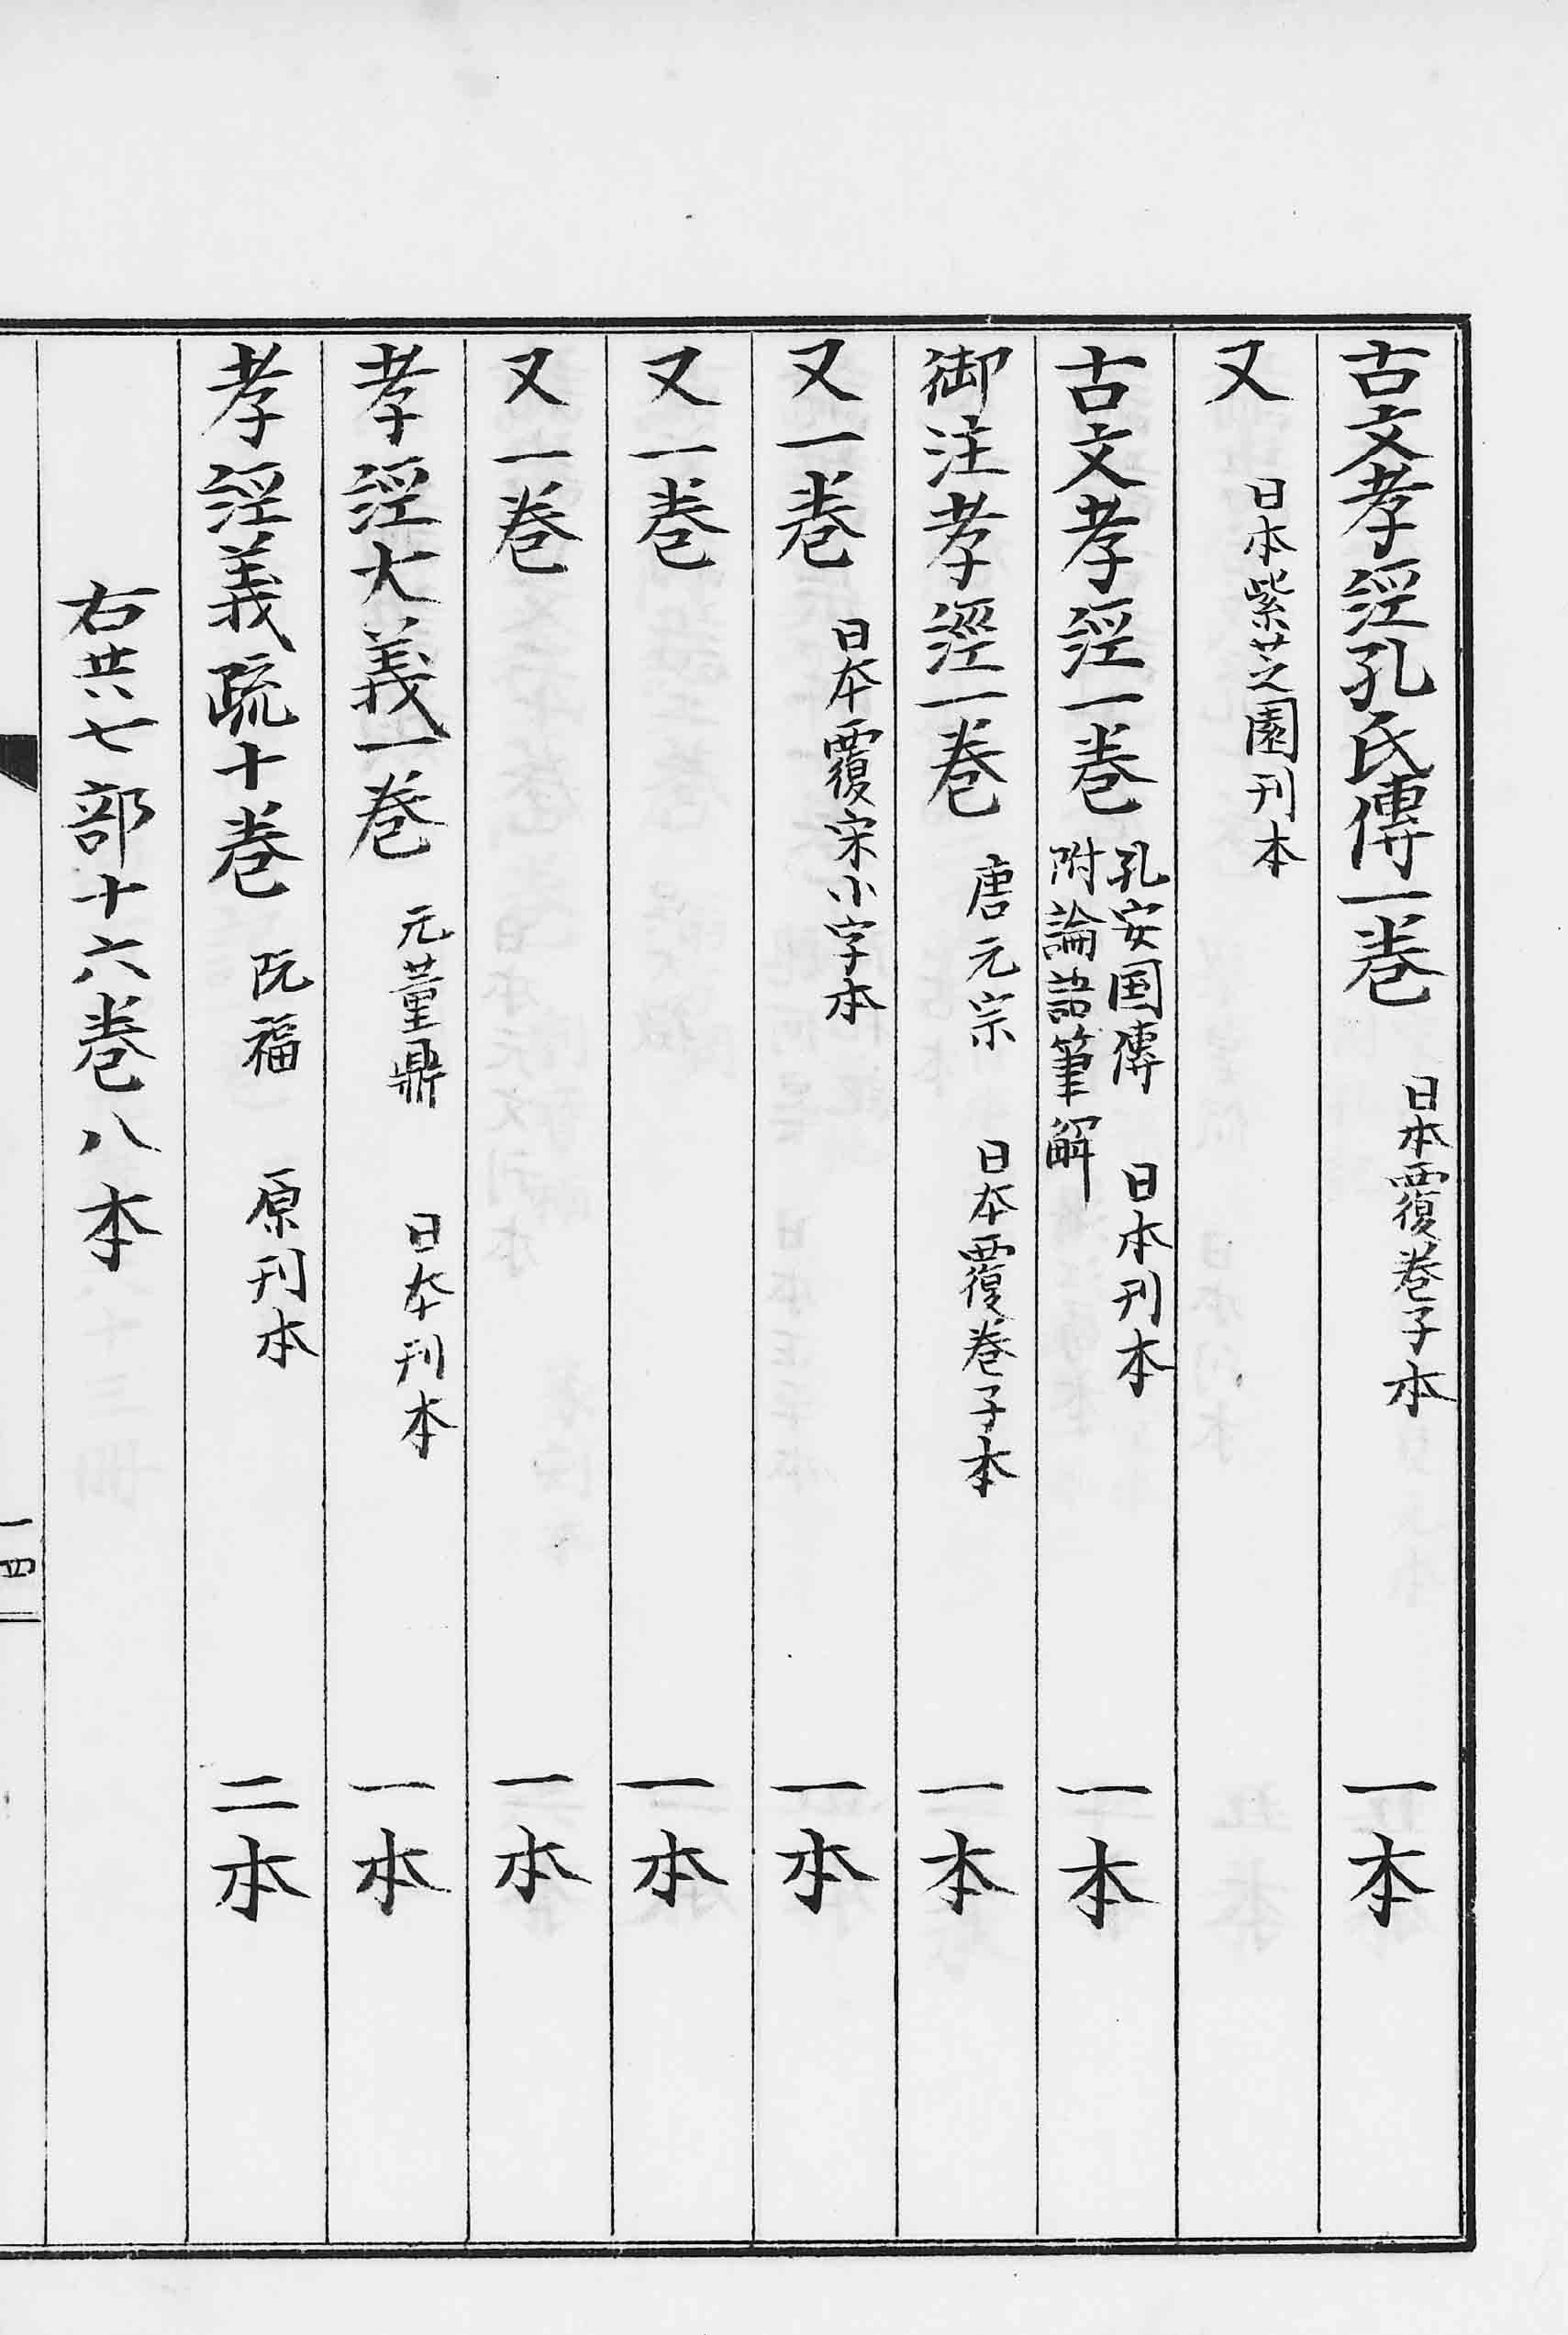 古文孝經孔氏傳一卷 日本覆卷子本 一本
又 日本紫芝園刊本
古文孝經一卷 孔安国傳 附論語筆解 日本刊本 一本
御注孝經一卷 唐元宗 日本覆卷子本 一本
又一卷 日本覆宋小字本 一本
又一卷 一本
又一卷 一本
孝經大義一卷 元董鼎 日本刊本 一本
孝經義疏十卷 阮福 原刊本 二本
右共七部十六卷八本
一四